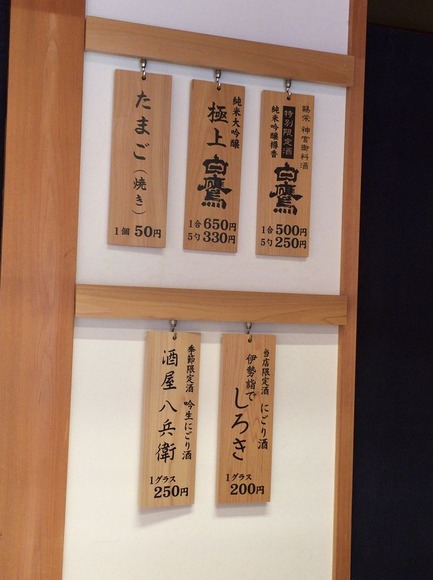 賜栄 神宮御料酒
特別限定酒
純米吟醸樽香
白鷹
1合500円
5勺250円
純米大吟醸
極上
白鷹
1合650円
5勺330円
たまご(焼き)
1個50円
当店限定酒 にごり酒
伊勢詣で
しろき
1グラス
200円
季節限定酒 吟生にごり酒
酒屋八兵衛
1グラス
250円